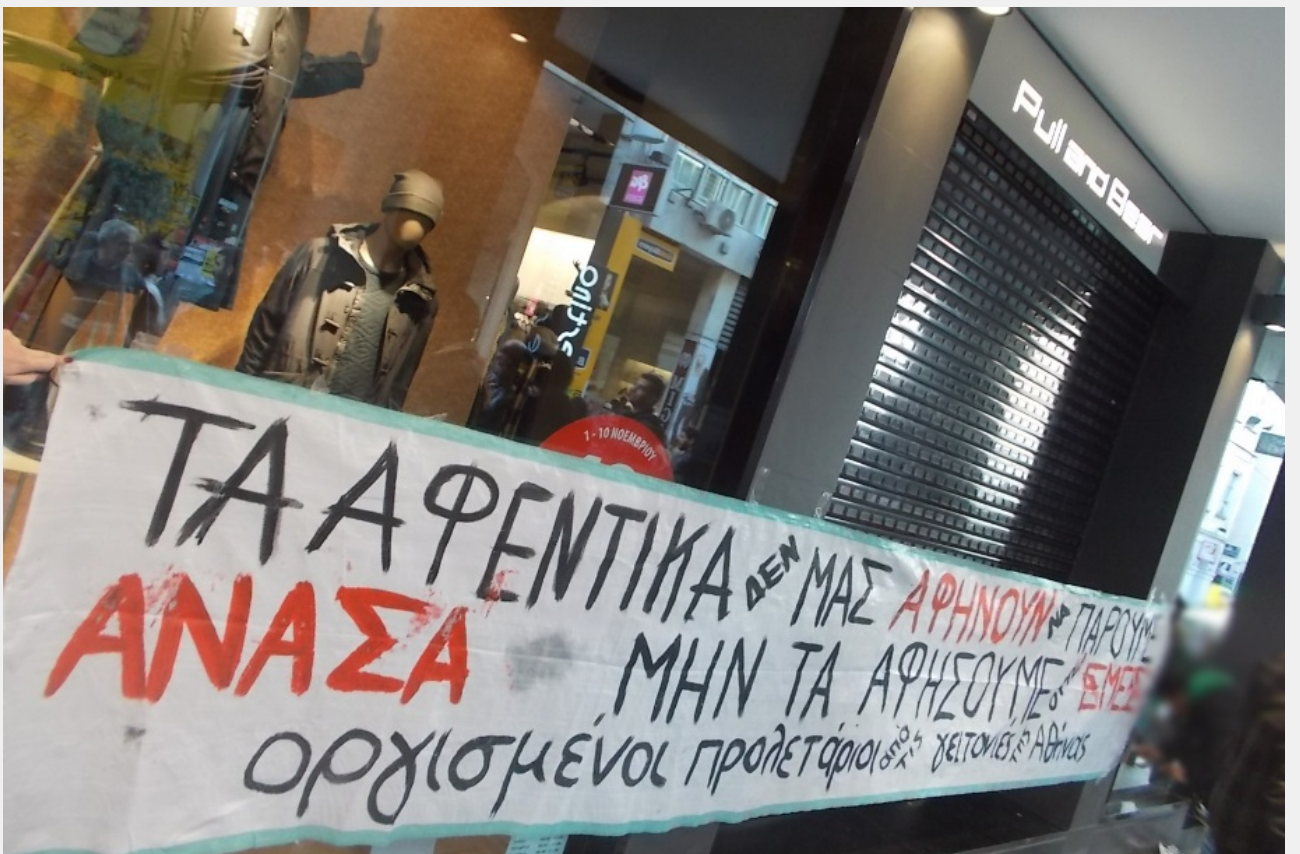 Pull and Bear
1 - 10 ΝΟΕΜΒΡΙΟΥ
ΤΑ ΑΦΕΝΤΙΚΑ ΔΕΝ ΜΑΣ ΑΦΗΝΟΥΝ ΝΑ ΠΑΡΟΥΜΕ
ΑΝΑΣΑ ΜΗΝ ΤΑ ΑΦΗΣΟΥΜΕ
οργισμένοι προλετάριοι από τις γειτονιές της Αθήνας